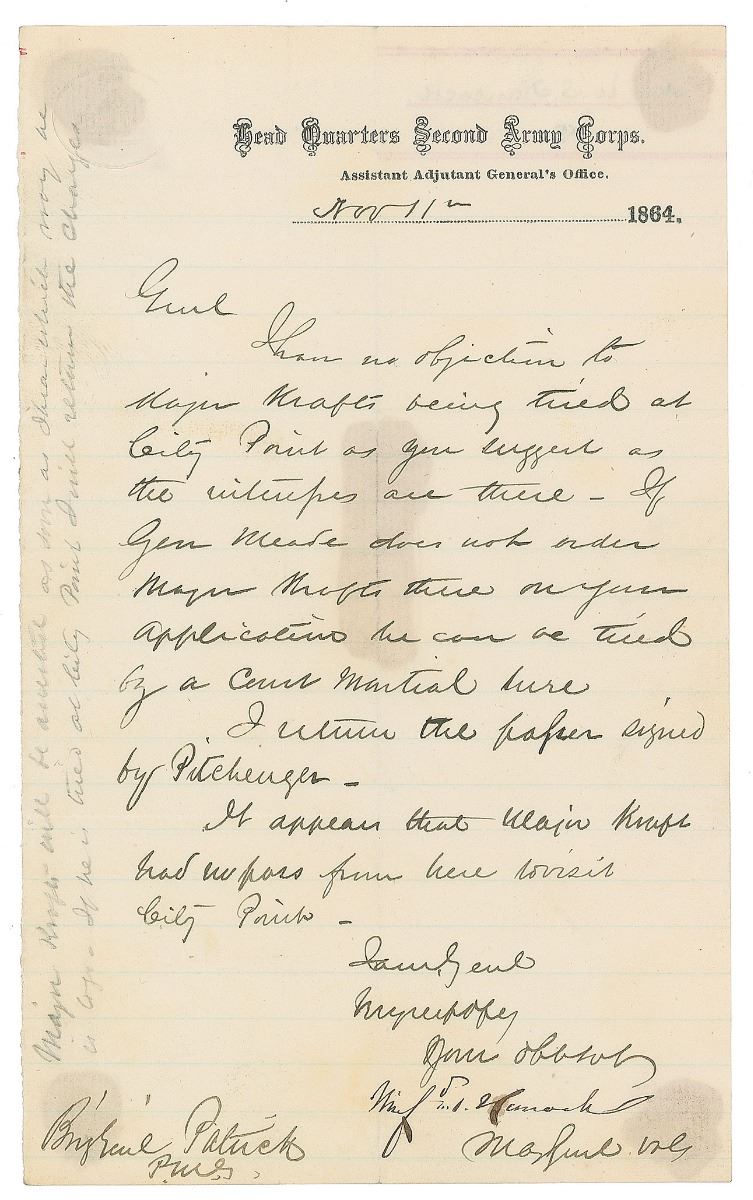 Head Quarters Second Army Corps.
Assistant Adjutant General's Office.
Nov 11th 1864.
Genl
I have no objection to
Major Krafts being tried at
City Point as you suggest as
the witnesses are there - If
Gen Meade does not order
Major Krafts there on your
application he can be tried
by a Court Martial here
I return the paper signed
by Pitchenger -
It appears that Major Kraft
had no pass from here to visit
City Point -
I am, Genl
Very respectfully
Your obt svt
Winf d S. Hancock
Maj Genl Vols
Brig Genl Patrick
P.M.G.
Major Kraft will be arrested as soon as which may be
If he is tried at City Point I will return the charges